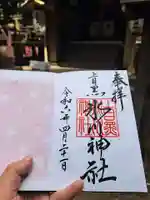 奉拝
目黒
氷川神社
令和六年四月二十一日